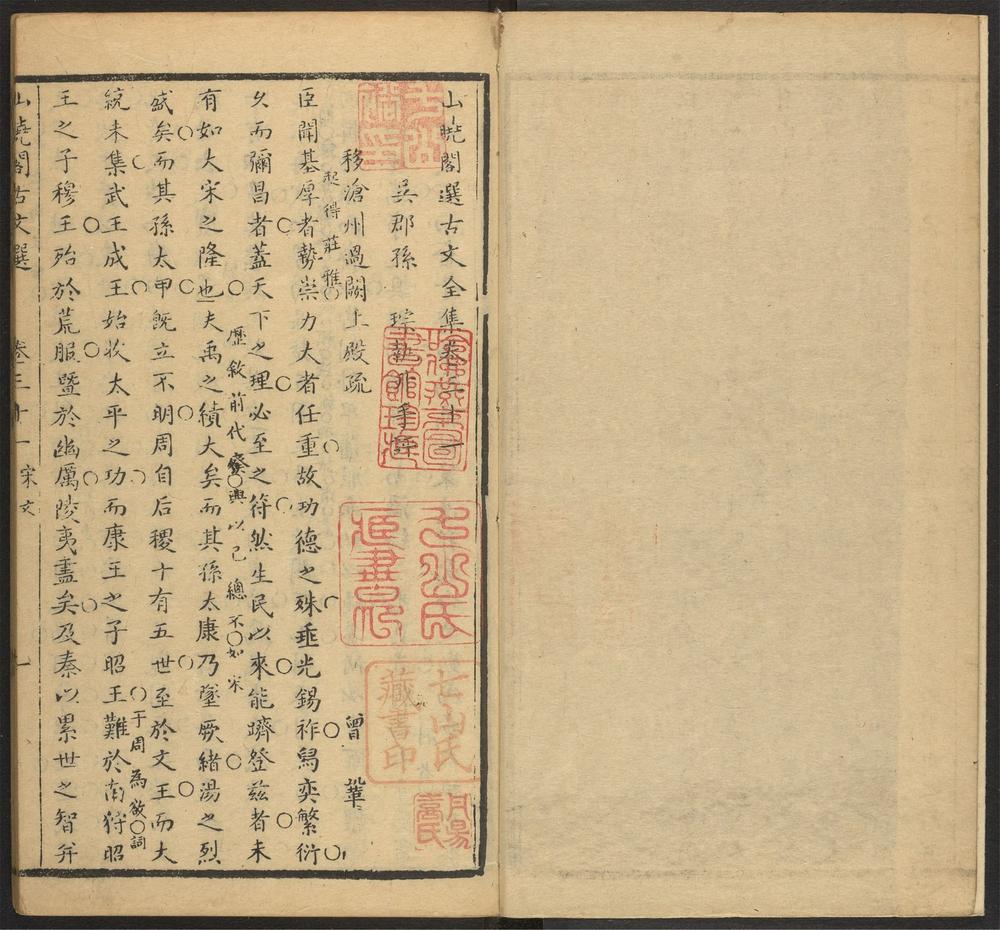 山曉閣選古文全集卷三十一
吳郡孫琮執升手評
移滄州過闕上殿疏
曾鞏
起得莊雅
臣聞基厚者勢崇力大者任重故功德之殊垂光錫祚舄奕繁衍
久而彌昌者蓋天下之理必至之符然生民以來能躋登茲者未
歷敘前代
興以已總不如宋
有如大宋之隆也夫禹之績大矣而其孫太康乃墜厥緒湯之烈
盛矣而其孫太甲旣立不明周自后稷十有五世至於文王而大
于周為
詞
統未集武王成王始收太平之功而康王之子昭王難於南狩昭
王之子穆王殆於荒服暨於幽厲陵夷盡矣及秦以累世之智并
山曉閣古文選
卷三十一
宋文
一
七山氏藏書印